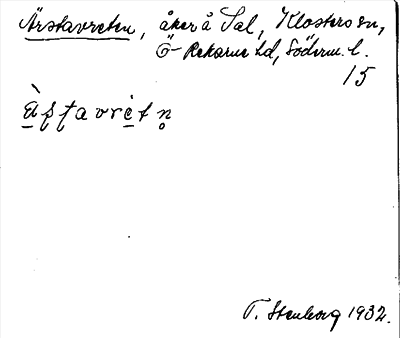 Ärstavreten, åker å Sal, Klosters sn,
Ö-Rekarne hd, Söderm. l.
15
ä̀ṣṭavrètn̥
T. Stenborg 1932.